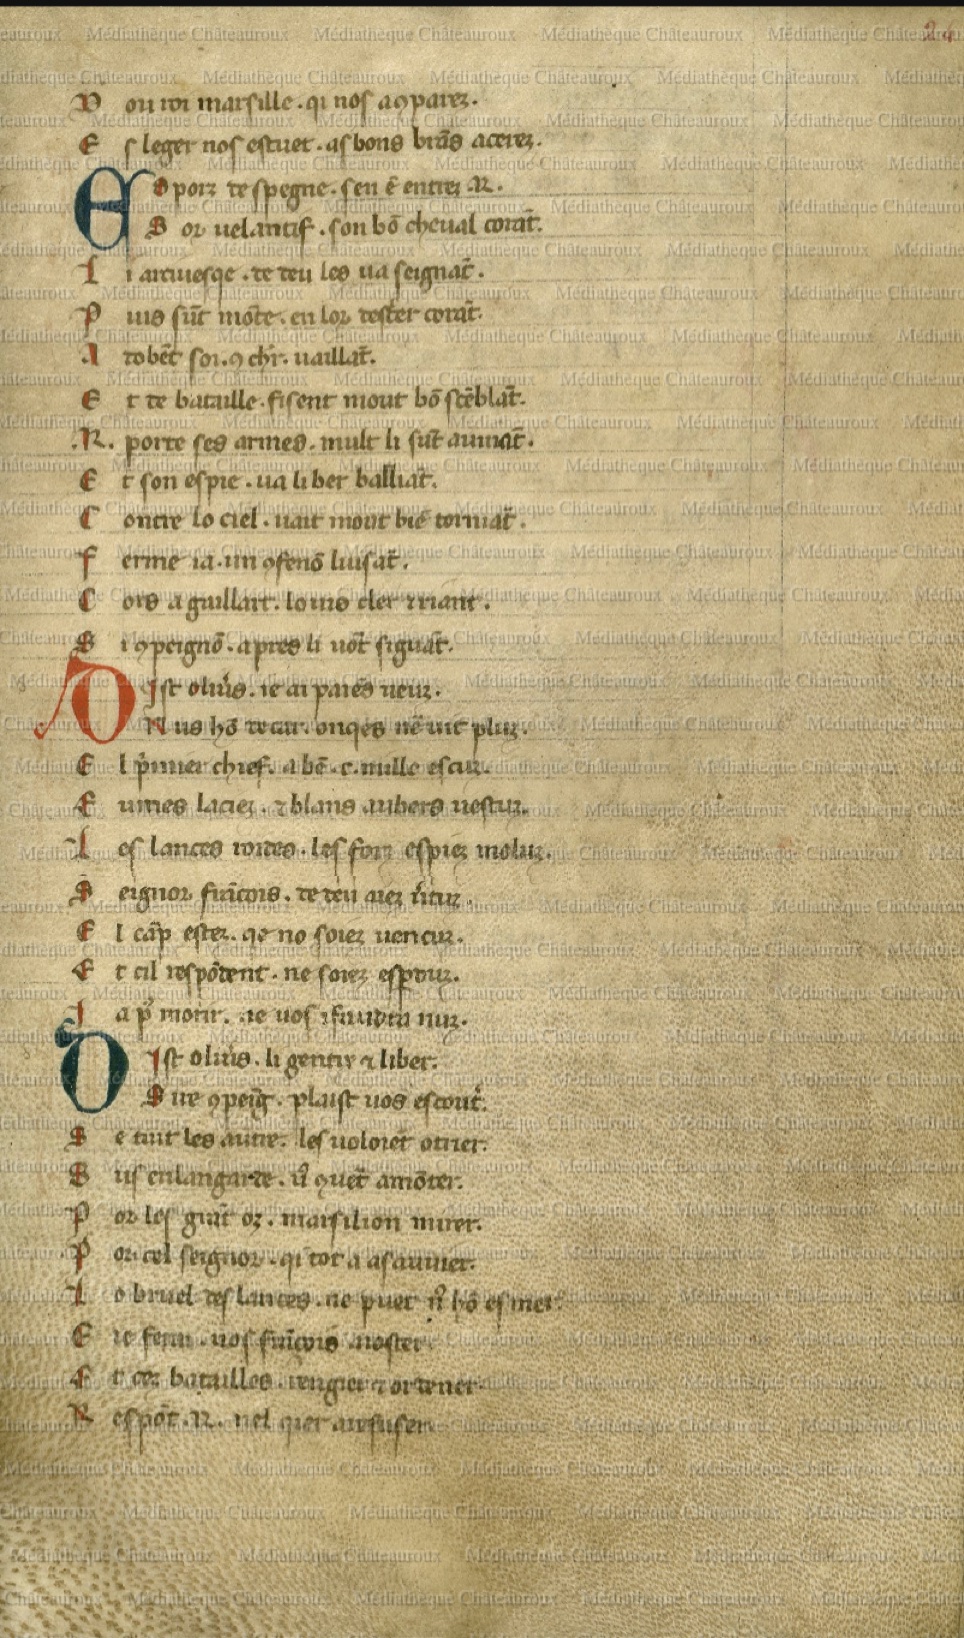 24
D ou roi marsille . qi nos a ꝯparez .
E s leger nos estuet . as bons brãs acerez .
ES porz de spegne . sen ẽ entrez .R.
S or uelantif . son bõ cheual corãt .
L i arciuesqe . de deu les ua seignãt .
P uis sũt mõte . en lor destrer corãt .
A dobẽt soi . ꝯ chr̃ . uaillãt .
E t de bataille . fisent mout bõ sẽblãt .
.R. porte ses armes . mult li sũt auinãt .
E t son espie . ua li ber balliãt .
C ontre lo ciel . uait mout biẽ tornãt .
F erme ia . un ꝯfenõ luisãt .
C ors a guillart . lo uis cler ⁊ riant .
S i ꝯpeignõ . apres li uõt siguãt .
DIst oliũs . ie ai paiẽs ueuz .
N us hõ de car . onqes nẽ uit pluz .
E l p̃mer chief . a bẽ .c. mille escuz .
E umes laciez . ⁊ blans aubers uestuz .
L es lances roides . les forz espiez moluz .
S eignor frãcois . de deu aiez ũtuz .
E l cãp estez . qe no soiez uencuz .
E t cil respõdent . ne soiez esperduz .
I a ꝑ morir . ne uos
DIst oliũs . li gentis ⁊ liber .
S ire ꝯpeig̃ . plaist uos escout̃ .
S e tuit les autre . les uoloiẽt otrier .
S us en langarde . uos ꝯuẽt amõter .
P or les granz oz . marsilion mirer .
P or cel seignor . qi tot a a sauuier .
L o bruel des lances . ne puet nus hõ esmer .
E ie feray . uos frãcois
E t cez batailles . rengier ⁊ ordener .
R espõt .R. nel qier a refuser .
Médiathèque Châteauroux